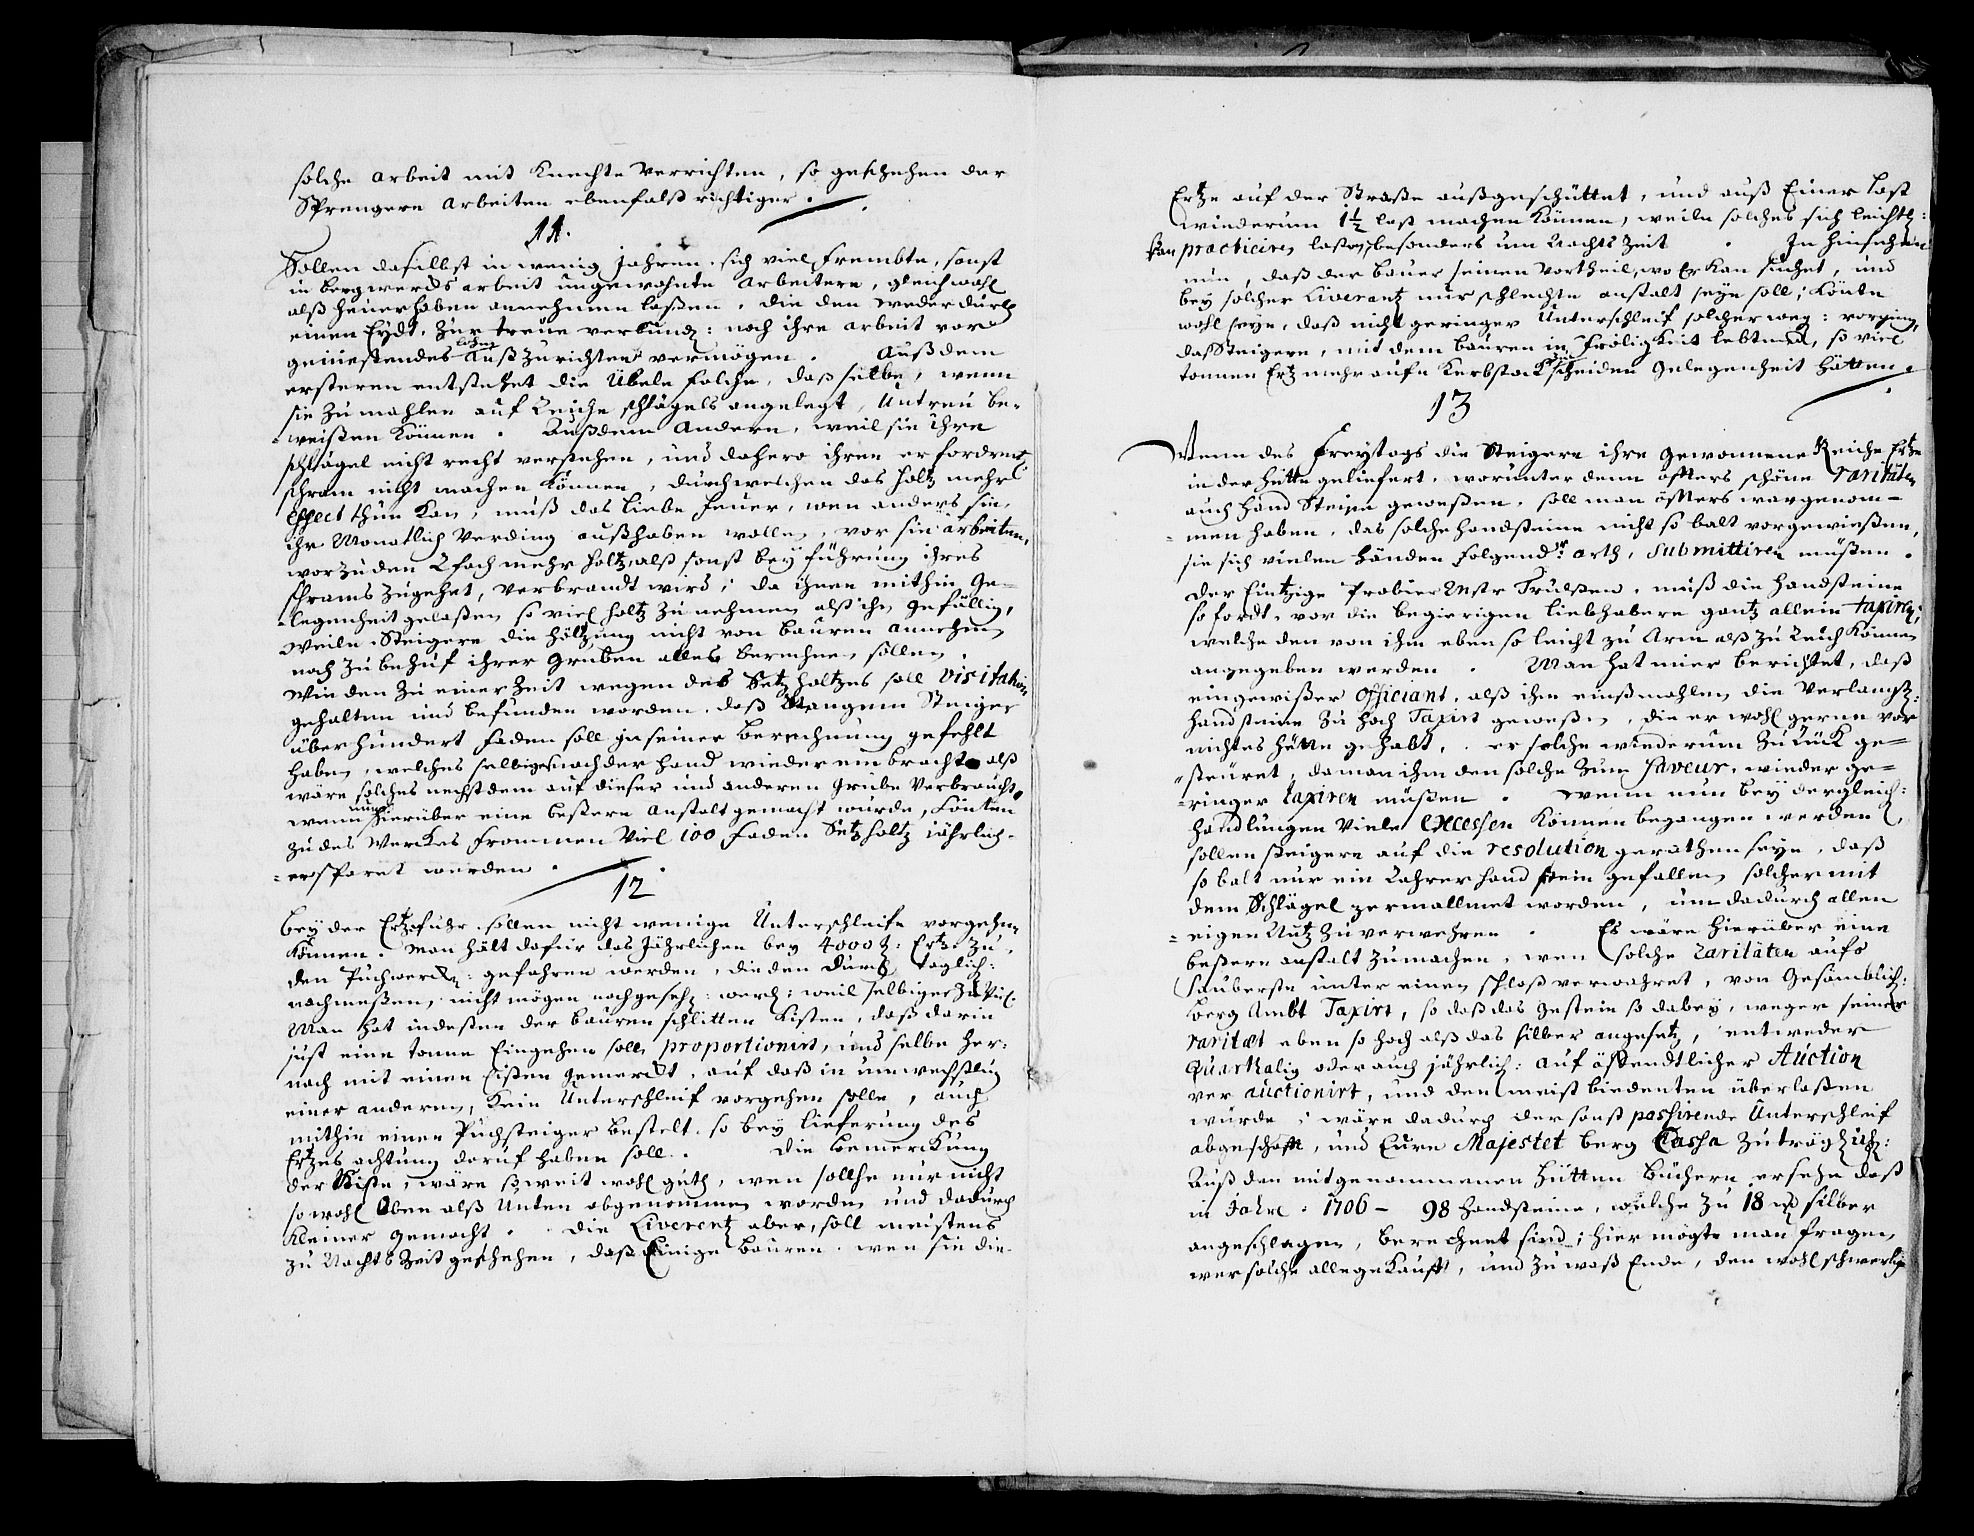 solche arbeit mit Knechte verrichten, so geschehen der
Sprengere arbeiten ebenfalß richtiger.
11.
Sollen daselbst in wenig Jahren sich viel frembte, sonst
in bergwercks arbeit ungewohnte arbeitere, gleichwohl
alß heuer haben annehmen laßen, die den weder durch
einen Eydt, zur treue verbund: noch ihre arbeit vor
geniestendes lohn außzurichten vermögen. Auß dem
ersteren entstehet die Übele folche, daß selbe, wenn
sie zumahlen auf Reiche schlägels angelegt, Untreu be-
weißen können. Außdem Andern, weil sie Ihre
schlägel nicht recht verstehen, und dahero ihren erfordrent:
schram nicht machen können, durch welchen das holtz mehr
Effect thun kan, muß das liebe feuer, wen anders sie,
ihr Monatlich Verding außhaben wollen, vor sie arbeiten,
worzu den 2 fach mehr holtz, alß sonst bey führung ihres
schrams zugehet, verbrandt wird; da ihnen mithin Ge-
legenheit gelaßen so viel holtz zu nehmen alß ihn gefällig,
weiln Steigere die holtzung nicht von bauren annehmen
noch zu behuf ihrer Gruben alles berechnen sollen.
Wie den zu einer Zeit wegen des Setzholtzes soll Visitation
gehalten und befunden worden, daß Steiger
über hundert faden soll in seiner berechnung gefehlt
haben, welches selbiger nach der hand wieder einbrachte alß
wäre solches nechst dem auf dieser und anderen Grube verbraucht,
wenn nun hierüber eine beßere anstalt gemacht würde, könten
zu des Werckes frommen Viel 100 faden Setzholtz jährlich
ersparet werden.
12
bey der Ertzfuhr sollen nicht wenige Unterschleife vorgehen
können. Man hält dafür das jährlichen bey 4000 t: Ertz zu
den Puchwerck: gefahren werden, die den durch täglich:
nachmeßen, nicht mögen nachgeseh: werd: weil selbiger zu viel.
Man hat indeßen der bauren schlitten Kisten, daß darin
just eine tonne Eingehen soll, proportionirt, und selbe her:
nach mit einen Eißen gemerckt, auf daß in umwechßlung
einer anderen, kein Unterschleif vorgehen solle, auch
mithin einen Puchsteiger bestelt so bey lieferung des
Ertzes achtung daruf haben soll. die bemerckung
der Kiste, wäre so weit wohl guth, wen sollche nur nicht
so wohl Oben alß Unten abgenommen worden und dadurch
kleiner gemacht. die Liverentz aber, soll meistens
zu Nachts Zeit geschehen, daß Einige bauren wen sie die
Ertze auf der Straße außgeschüttet, und auß Einer last
wiederum 1½ last machen können, weiln solches sich leichtl:
kan practiciren laßen, besonders um Nachts Zeit. In hinsehen
nun, daß der bauer seinen vortheil, wo Er kan suchet, und
bey solcher Liverantz nur schlechte anstalt seyn soll; könte
wohl seyn, daß nicht geringer Unterschleif solcher weg: vorging,
daß Steigere, mit dem bauren in frölichkeit lebten, so viel
tonnen Ertz mehr aufn Kerbstock zu schneiden gelegenheit hätten.
13
Wenn des Freytags die Steigere ihre gewonnene Reiche Ertze
in der hütte geliefert, worunter denn öffters schöne rariteten
auch hand Steine geweßen, soll man öffters wargenom-
men haben, das solche handsteine nicht so balt vorgewießen,
sie sich vielen händen folgend: arth, submittiren müßen.
Der Eintzige Probier Mstr Trulßen, muß die handsteine
so fordt, vor die begierigen liebhabere gantz allein taxiren,
welche den von ihm eben so leicht zu Arm alß zu Reich können
angegeben werden. Man hat mier berichtet, daß
ein gewißer Officiant, alß ihm einßmahlen die verlangte:
handsteine zu hoch Taxirt geweßen, die er wohl gerne vor
nichtes hätte gehabt, er solche wiederum zurück ge-
steuret, da man ihm den solche zum faveur, wieder ge-
ringer taxiren müßen. Wenn nun bey dergleich:
handlungen viele Excessen können begangen werden,
sollen steigere auf die resolution gerathen seyn, daß
so balt nur ein Rahrer hand stein gefallen, solcher mit
dem Schlägel zermallmet worden, um dadurch allen
eigen Nutz zu verwehren. Es wäre hierüber eine
beßere anstalt zu machen, wen solche Raritäten aufs
sauberste unter einen schloß verwahret, von gesambtlich:
berg Ambt Taxirt, so daß das Gestein so dabey, wegen seiner
raritet eben so hoch alß das silber angesetzt, entweder
Quarthalig oder auch jährlich: auf öffendtlicher Auction
ver auctionirt, und den meist biedenten überlaßen
würde; wäre dadurch der sonst passirende Unterschleif
abgeschaft, und Eure Majestet berg Cassa zuträglich:
Auß den mitgenommenen hütten büchern ersehe daß
in Jahre 1706 - 98 handsteine, welche zu 18 silber
angeschlagen, berechnet sind; hier mögte man fragen,
wer solche alle gekauft, und zu waß Ende, den wohl schwerlich